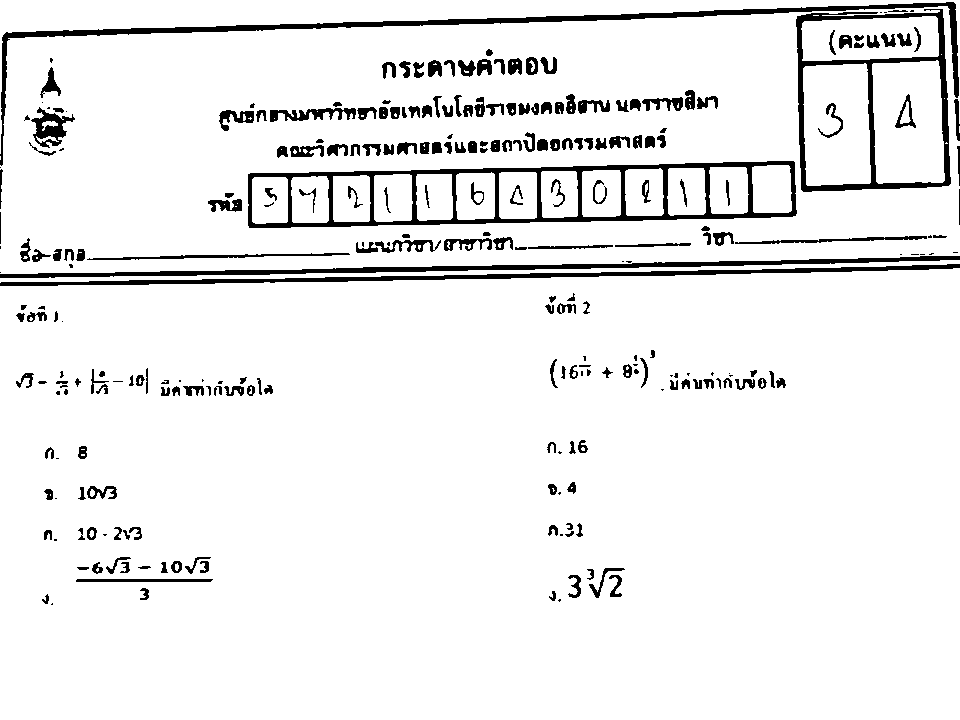 กระดาษคำตอบ
(คะแนน)
3 4
ศูนย์กลางมหาวิทยาลัยเทคโนโลยีราชมงคลอีสาน นครราชสีมา
คณะวิศวกรรมศาสตร์และสถาปัตยกรรมศาสตร์
รหัส 5 7 2 1 1 6 4 3 0 2 1 1
ชื่อ-สกุล แผนกวิชา/สาขาวิชา วิชา
ข้อที่ 1.
มีค่าเท่ากับข้อใด
ก. 8
ข. 10√3
ค. 10 - 2√3
ง. (-6√3 - 10√3)/3
ข้อที่ 2
มีค่าเท่ากับข้อใด
ก. 16
ข. 4
ค.31
ง. 3∛2